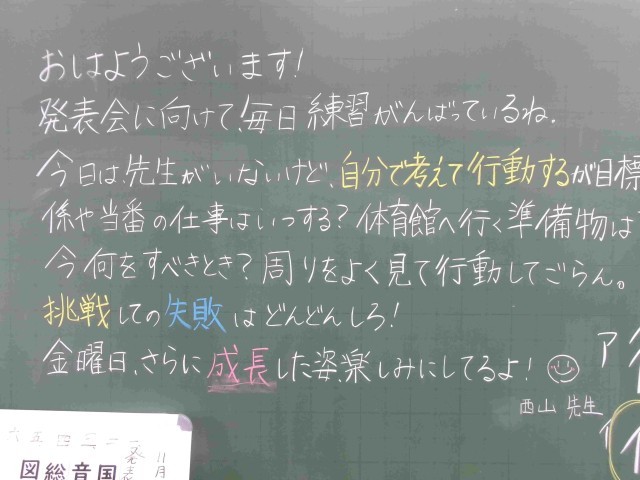 おはようございます!
発表会に向けて、毎日練習がんばっているね.
今日は先生がいないけど、自分で考えて行動するが目標
係や当番の仕事はいつする?体育館へ行く準備物は
今何をすべきとき?周りをよく見て行動してごらん。
挑戦しての失敗はどんどんしろ!
金曜日、さらに成長した姿、楽しみにしてるよ!
西山 先生
ア
六五四三二一
発表
11月
図総音国